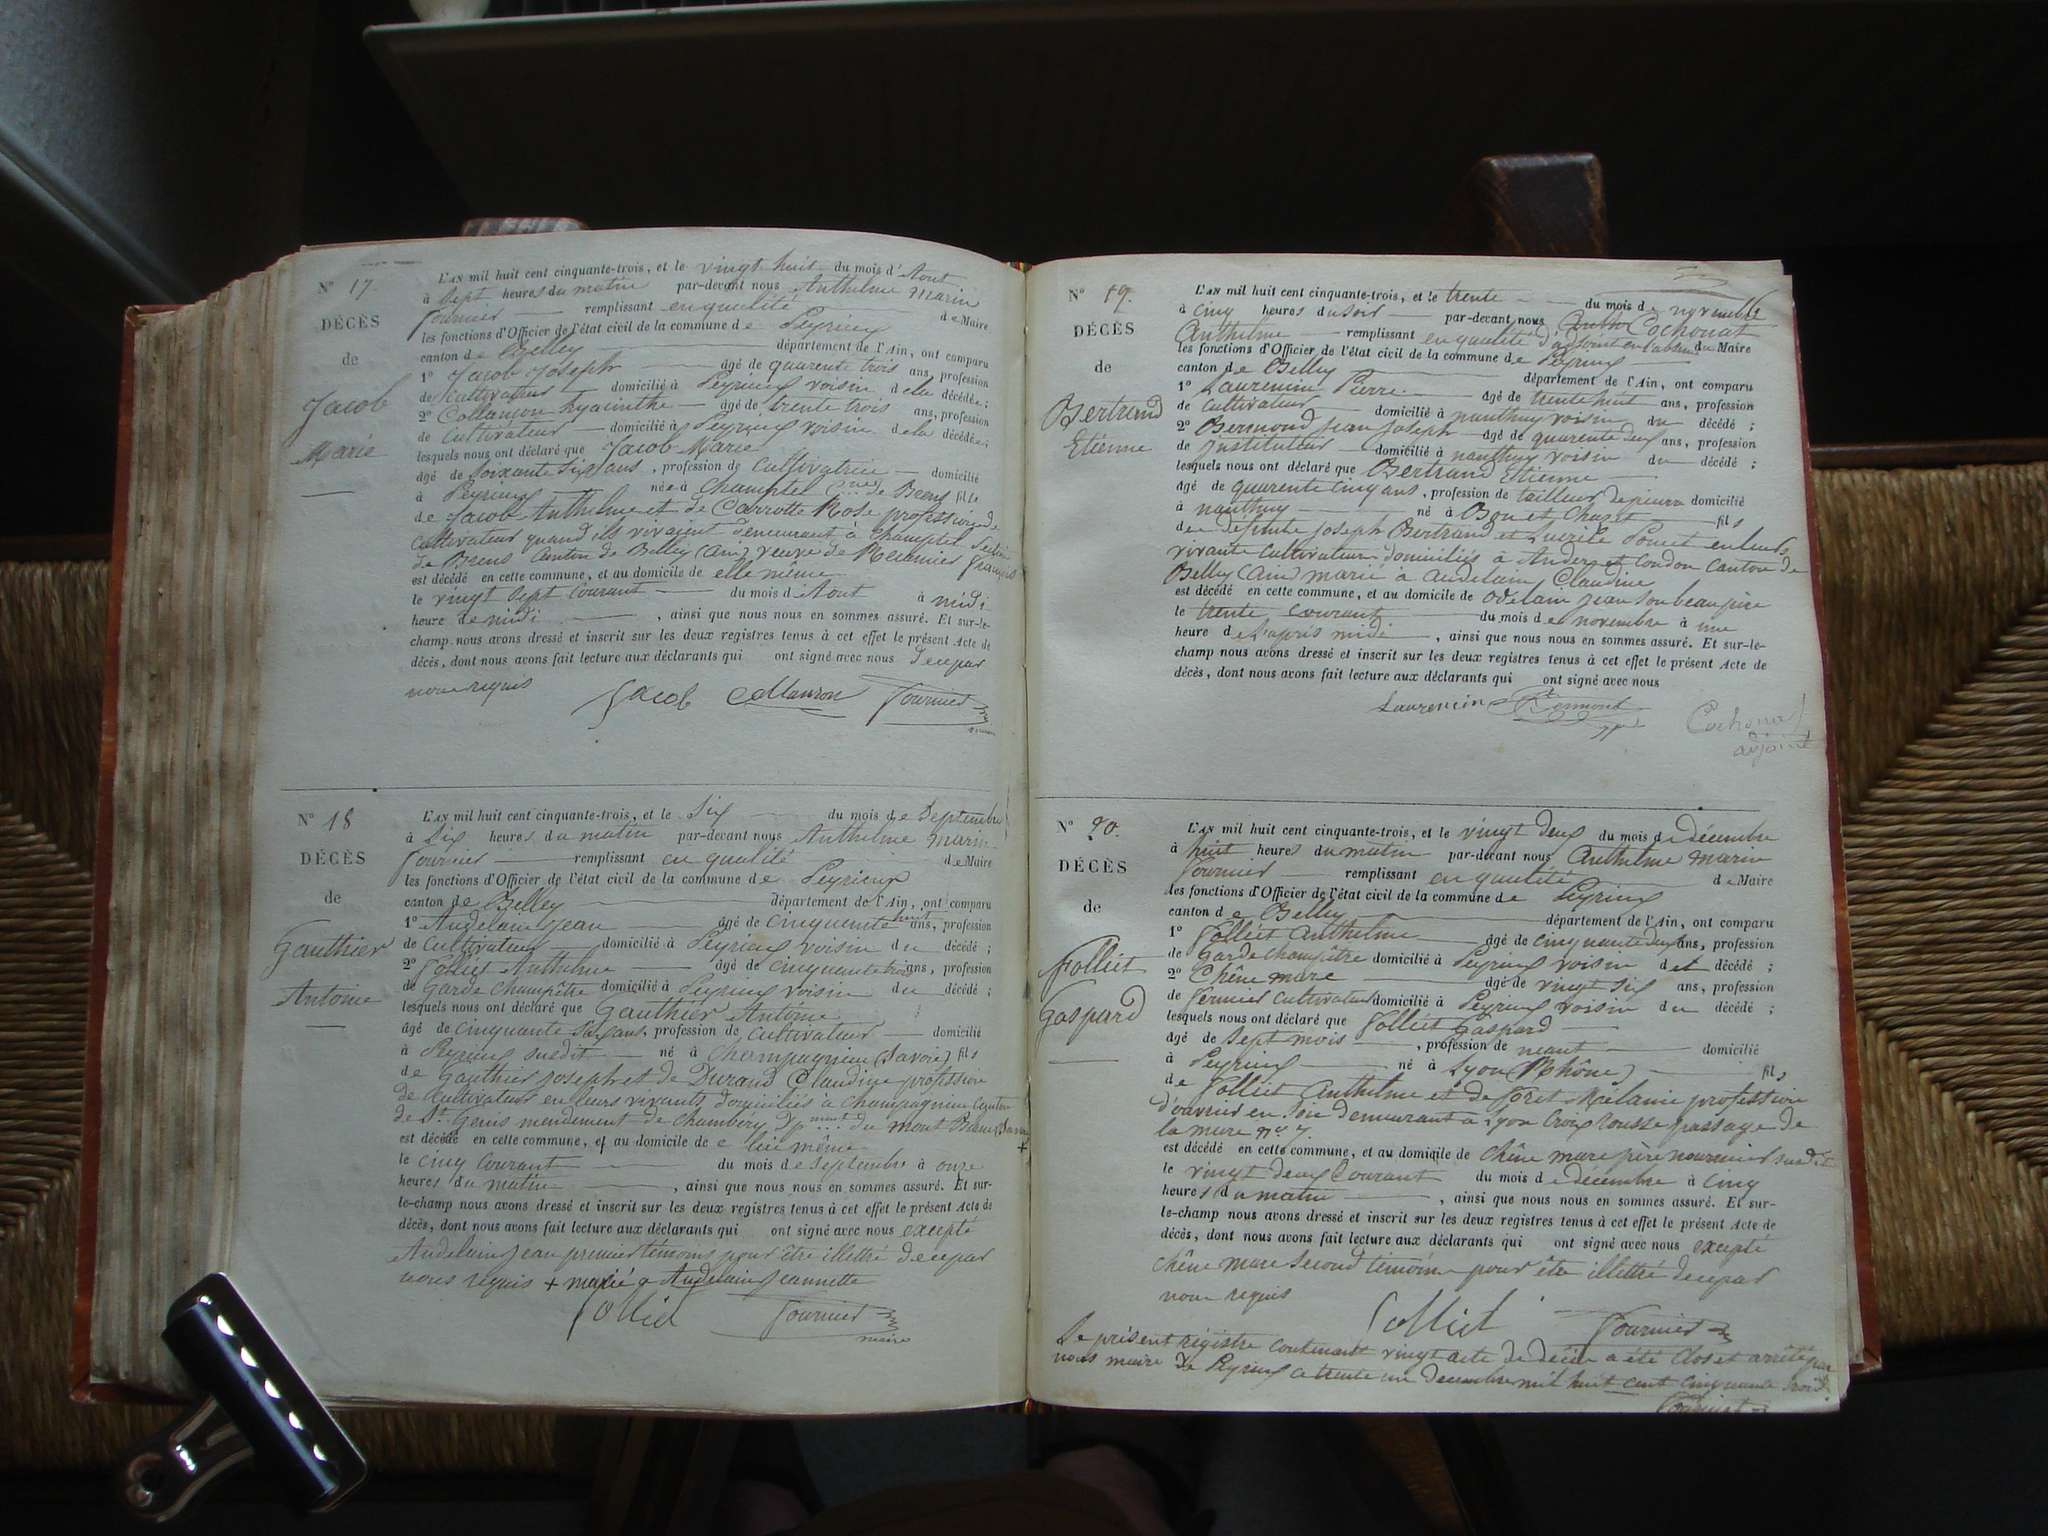 N° 17.
DÉCÈS
de
Jacob
Marie
L'AN mil huit cent cinquante-trois, et le vingt huit du mois d'Aout
à sept heures du matin par-devant nous Anthelme Marin
Fournier remplissant en qualité de Maire
les fonctions d'Officier de l'état civil de la commune de Peyrieux
canton de Belley département de l'Ain, ont comparu
1° Jacob Joseph âgé de quarente trois ans, profession
de cultivateur domicilié à Peyrieux voisin d elle décédée;
2° Collançon hyacinthe âgé de trente trois ans, profession
de cultivateur domicilié à Peyrieux voisin de la décédée;
lesquels nous ont déclaré que Jacob Marie
âgé de soixante six ans, profession de cultivatrice domicilié
à Peyrieux née à Champtel de Brens fille
de Jacob Anthelme et de Carrotte Rose profession de
cultivateur quand ils vivaient demeurant à Champtel
de Brens Canton de Belley (Ain) veuve de Mecanier françois
est décédé en cette commune, et au domicile de elle même
le vingt sept courant du mois d'Aout à midi
heure de midi, ainsi que nous nous en sommes assuré. Et sur-le-
champ nous avons dressé et inscrit sur les deux registres tenus à cet effet le présent Acte de
décès, dont nous avons fait lecture aux déclarants qui ont signé avec nous de ce par
nous requis
Jacob Collançon Fournier
N° 18
DÉCÈS
de
Gauthier
Antoine
L'AN mil huit cent cinquante-trois, et le Six du mois de Septembre
à Six heures du matin par-devant nous Anthelme Marin
Fournier remplissant en qualité de Maire
les fonctions d'Officier de l'état civil de la commune de Peyrieux
canton de Belley département de l'Ain, ont comparu
1° Andelain Jean âgé de cinquente huit ans, profession
de cultivateur domicilié à Peyrieux voisin du décédé;
2° Folliet Anthelme âgé de cinquante trois ans, profession
de Garde champêtre domicilié à Peyrieux voisin du décédé;
lesquels nous ont déclaré que Gauthier Antoine
âgé de cinquante six ans, profession de cultivateur domicilié
à Peyrieux susdit né à Champagneux (Savoie) fils
de Gauthier Joseph et de Durand Claudine profession
de cultivateurs en leurs vivants domiciliés à Champagneux Canton
de St Genis mendement de Chambéry du mont
est décédé en cette commune, et au domicile de lui même +
le cinq courant du mois de Septembre à onze
heures du matin, ainsi que nous nous en sommes assuré. Et sur-
le-champ nous avons dressé et inscrit sur les deux registres tenus à cet effet le présent Acte de
décès, dont nous avons fait lecture aux déclarants qui ont signé avec nous excepté
Andelain Jean premier témoins pour être illettré de ce par
nous requis + marié a Andelain Jeannette
Folliet Fournier
maire
N° 19.
DÉCÈS
de
Bertrand
Etienne
L'AN mil huit cent cinquante-trois, et le trente du mois de novembre
à cinq heures du soir par-devant nous Cochonat
Anthelme remplissant en qualité d'adjoint en l'absence du Maire
les fonctions d'Officier de l'état civil de la commune de Peyrieux
canton de Belley département de l'Ain, ont comparu
1° Laurencin Pierre âgé de trente huit ans, profession
de cultivateur domicilié à nanthuy voisin du décédé;
2° Bermond Jean Joseph âgé de quarente deux ans, profession
de instituteur domicilié à nanthuy voisin du décédé;
lesquels nous ont déclaré que Bertrand Etienne
âgé de quarente cinq ans, profession de tailleur de pierre domicilié
à nanthuy né à Bon et Chazet fils
de defunts Joseph Bertrand et Lucrèce Pouet en leurs
vivants cultivateurs domiciliés à Andert et Condon canton de
Belley (Ain) marié à Andelain Claudine
est décédé en cette commune, et au domicile de Odelain Jean son beau père
le trente courant du mois de novembre à une
heure de l'après midi, ainsi que nous nous en sommes assuré. Et sur-le-
champ nous avons dressé et inscrit sur les deux registres tenus à cet effet le présent Acte de
décès, dont nous avons fait lecture aux déclarants qui ont signé avec nous
Laurencin Bermont Cochonat
adjoint
N° 20.
DÉCÈS
de
Folliet
Gaspard
L'AN mil huit cent cinquante-trois, et le vingt deux du mois de décembre
à huit heures du matin par-devant nous Anthelme Marin
Fournier remplissant en qualité de Maire
les fonctions d'Officier de l'état civil de la commune de Peyrieux
canton de Belley département de l'Ain, ont comparu
1° Folliet Anthelme âgé de cinquante deux ans, profession
de Garde champêtre domicilié à Peyrieux voisin det décédé;
2° Chêne marc âgé de vingt six ans, profession
de fermier cultivateur domicilié à Peyrieux voisin du décédé;
lesquels nous ont déclaré que Folliet Gaspard
âgé de sept mois, profession de neant domicilié
à Peyrieux né à Lyon (Rhône) fils
de Folliet Anthelme et de Foret Mélanie profession
d'ouvrier en soie demeurant a Lyon Croix Rousse passage de
la mure n° 7.
est décédé en cette commune, et au domicile de Chêne marc père nourricier susdit
le vingt deux courant du mois de décembre à cinq
heures du matin, ainsi que nous nous en sommes assuré. Et sur-
le-champ nous avons dressé et inscrit sur les deux registres tenus à cet effet le présent Acte de
décès, dont nous avons fait lecture aux déclarants qui ont signé avec nous excepté
chêne marc second témoin pour être illettré de ce par
nous requis
Folliet Fournier
Le présent régistre contenant vingt acte de décès a été clos et arrêté par
nous maire de Peyrieux ce trente un decembre mil huit cent cinquante trois.
Fournier